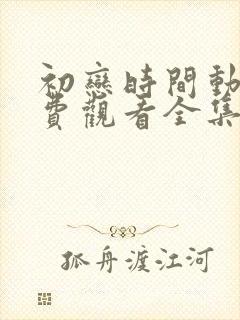 初戀時間動
費觀看全集
孤舟渡江河